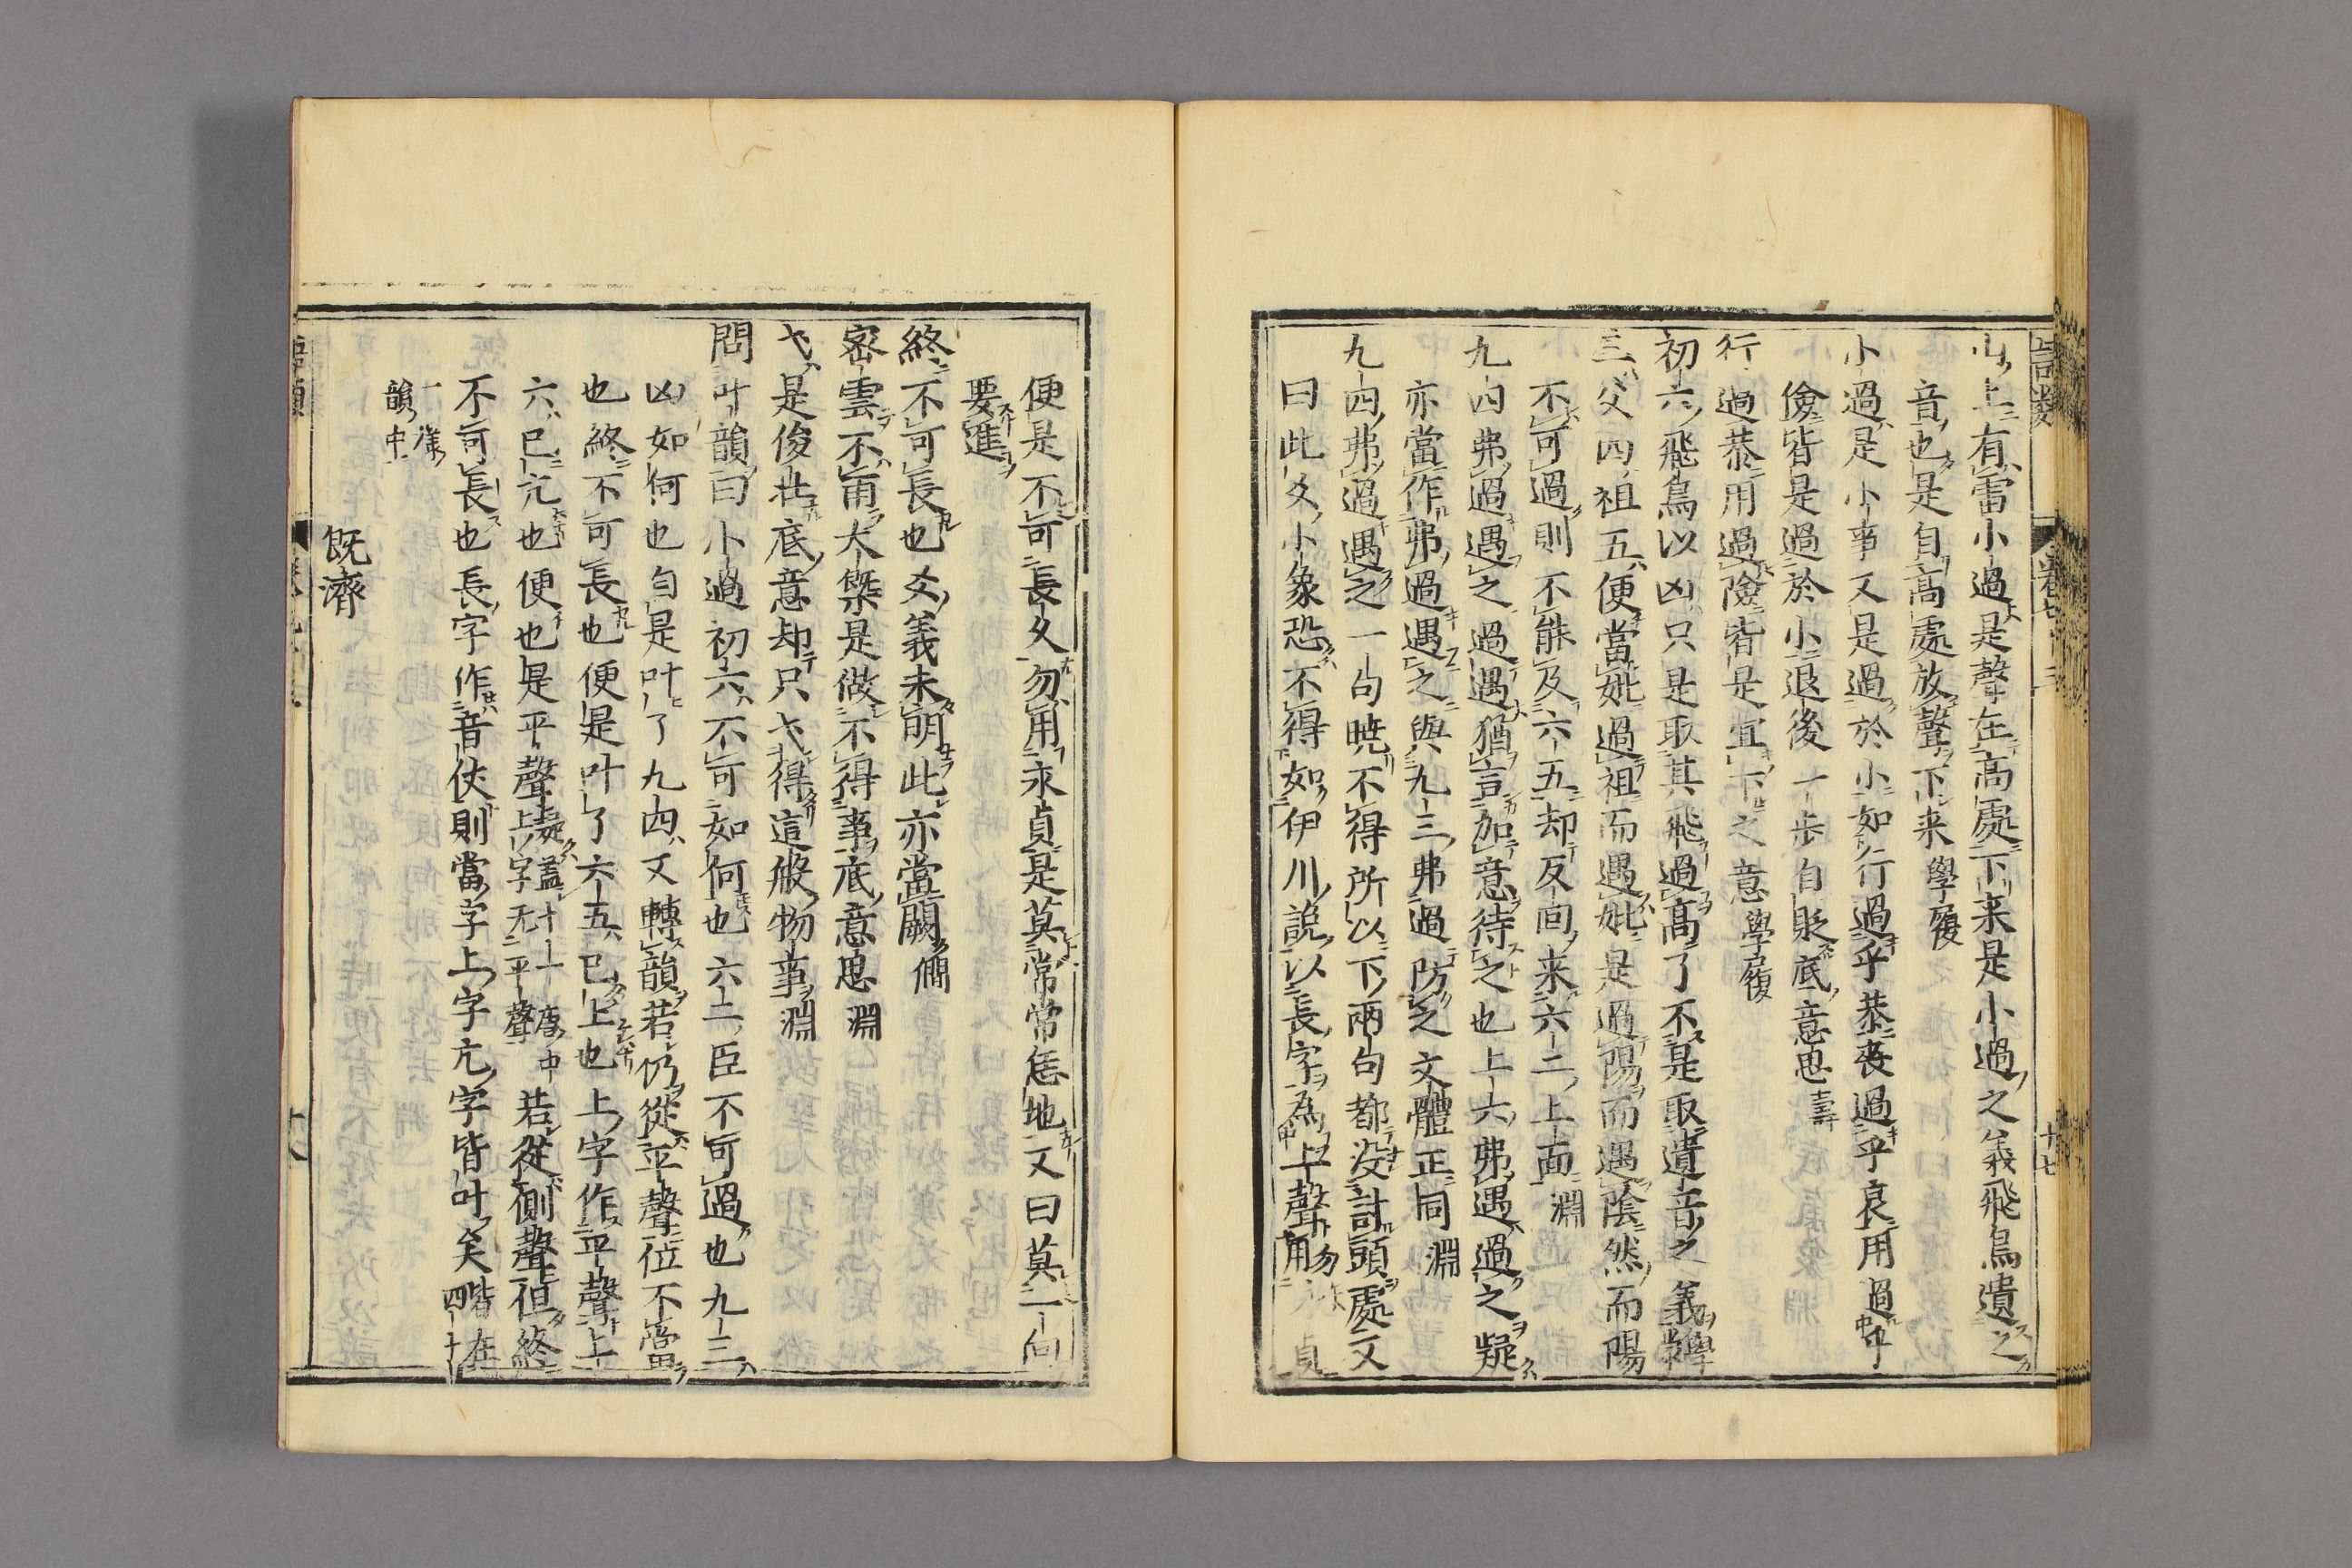 山上有雷小過是聲在高處下来是小過之義飛鳥遺之
音也是自高處放聲下来學履
小過是小事又是過於小如行過乎恭喪過乎哀用過乎
儉皆是過於小退後一步自貶底意思壽
行過恭用過險皆是宜下之意學履
初六飛鳥以凶只是取其飛過高了不是取遺音之義學
三父四祖五便當妣過祖而遇妣是過陽而遇陰然而陽
不可過則不能及六五却反回来六二上面淵
九四弗過遇之過遇猶言加意待之也上六弗遇過之疑
亦當作弗過遇之與九三弗過防之文體正同淵
九四弗過遇之一句曉不得所以下兩句都没討頭處又
曰此爻小象恐不得如伊川說以長字為上聲勿用永貞
便是不可長久勿用永貞是莫常常恁地又曰莫一向
要進
終不可長也爻義未明此亦當闕僩
密雲不雨大槩是做不得事底意思淵
弋是俊壯底意却只弋得這般物事淵
問叶韻曰小過初六不可如何也六二臣不可過也九三
凶如何也自是叶了九四又轉韻若仍從平聲位不當
也終不可長也便是叶了六五已上也上字作平聲上
六已亢也便也是平聲疑蓋十一唐中上字无平聲若從側聲但終
不可長也長字作音仗則當字上字亢字皆叶矣皆在四十
一漾韻中
既濟